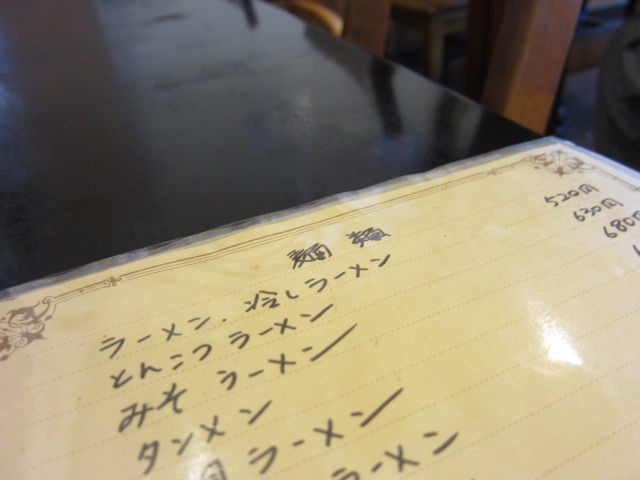 麺類
ラーメン、冷しラーメン 520円
とんこつラーメン 630円
みそラーメン 680円
タンメン
ラーメン
ラーメン